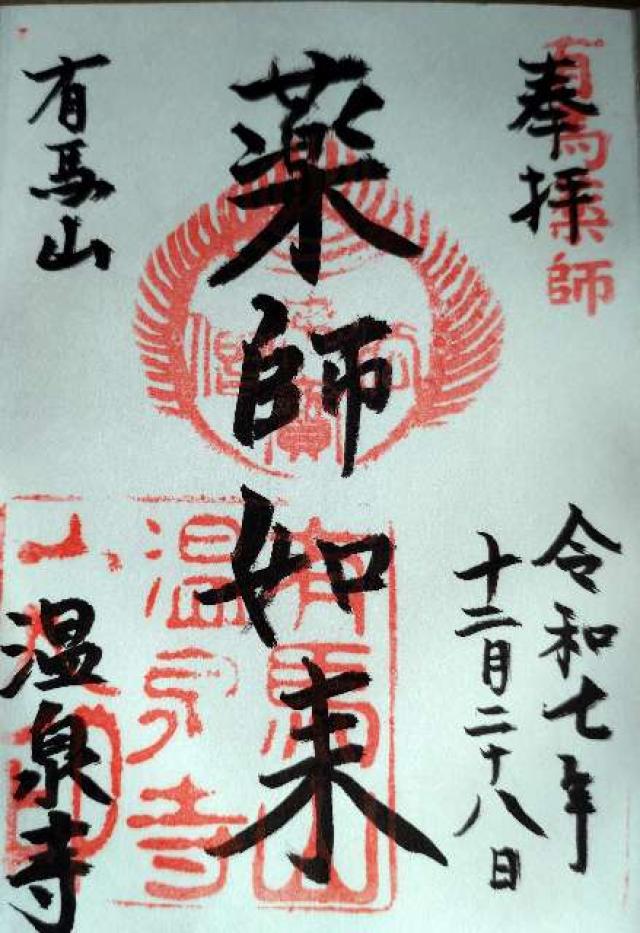 奉拝
有馬薬師
令和七年
十二月二十八日
薬師如来
有馬山
温泉寺
有馬山
温泉寺